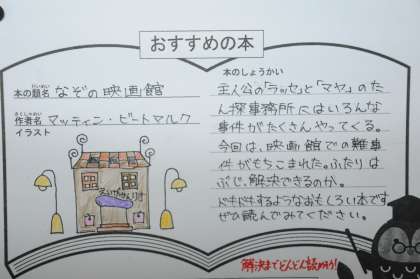 おすすめの本
本の題名 なぞの映画館
さくしゃめい
作者名 マッティン・ビートマルク
イラスト
本のしょうかい
主人公の「ラッセ」と「マヤ」のた
ん探事務所にはいろんな
事件がたくさんやってくる。
今回は、映画館での難事
件がもちこまれた。ふたりは
ぶじ、解決できるのか。
ドキドキするようなおもしろい本です
ぜひ読んでみてください。
解決までどんどん読めちゃう!